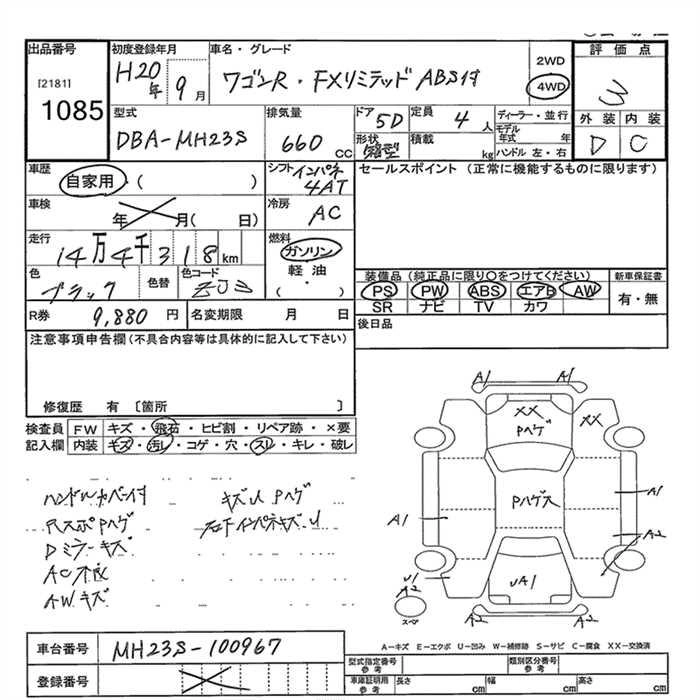 出品番号
[2181]
1085
初度登録年月
H20年 9月
車名・グレード
ワゴンR・FXリミテッド ABS付
2WD
4WD
評価点
3
外装 内装
D C
型式
DBA-MH23S
排気量
660 CC
ドア 5D
形状 箱型
定員 4人
積載 kg
ディーラー・並行
モデル年式 年
ハンドル 左・右
車歴
自家用・( )
シフト インパネ
4AT
セールスポイント (正常に機能するものに限ります)
車検
年 月( 日)
冷房
AC
走行
14万4千318km
燃料
ガソリン
軽油
( ・ )
色
ブラック
色替
色コード
ZJ3
装備品 (純正品に限り○をつけてください)
PS PW ABS エアB AW
SR ナビ TV カワ
新車保証書
有・無
R券 9,880 円
名変期限 月 日
後日品
注意事項申告欄(不具合内容等は具体的に記入して下さい)
修復歴 有 〔箇所 〕
検査員記入欄
FW キズ・飛石・ヒビ割・リペア跡・×要
内装 キズ・汚レ・コゲ・穴・スレ・キレ・破レ
ハンドルカバー付
RスポPハゲ
Dミラーキズ
AC不良
AWキズ
キズU Pハゲ
右下インパネキズ・U
A1
A1
XX
Pハゲ
XX
Pハゲス
A1
A1
A2
UA1
U1
A2
A2
A2
スペア
A-キズ E-エクボ U-凹み W-補修跡 S-サビ C-腐食 XX-交換済
車台番号 MH23S-100967
登録番号
型式指定番号 参考
類別区分番号 参考
車庫証明用 参考
長さ cm
幅 cm
高さ cm